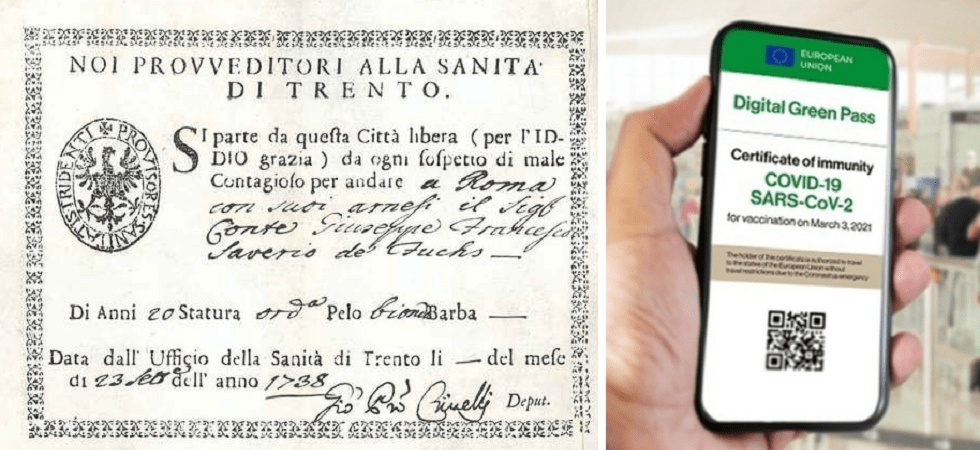 NOI PROVVEDITORI ALLA SANITA'
DI TRENTO.
PROVISORES SANITATIS TRIDENTI
SI parte da queſta Città libera (per l'ID-
DIO grazia) da ogni ſoſpetto di male
Contagioſo per andare a Roma
con suoi arnesi il Sigʳ
Conte Giuseppe Francesco
Saverio de Fuchs —
Di Anni 20 Statura ord.ª Pelo biondo Barba —
Data dall' Ufficio della Sanità di Trento li — del meſe
di 23 Setᵉ dell' anno 1738
Deput.
EUROPEAN
UNION
Digital Green Pass
Certificate of immunity
COVID-19
SARS-CoV-2
for vaccination on March 3, 2021
The holder of this certificate is authorized to travel
to the states of the European Union without
travel restrictions due to the Coronavirus emergency